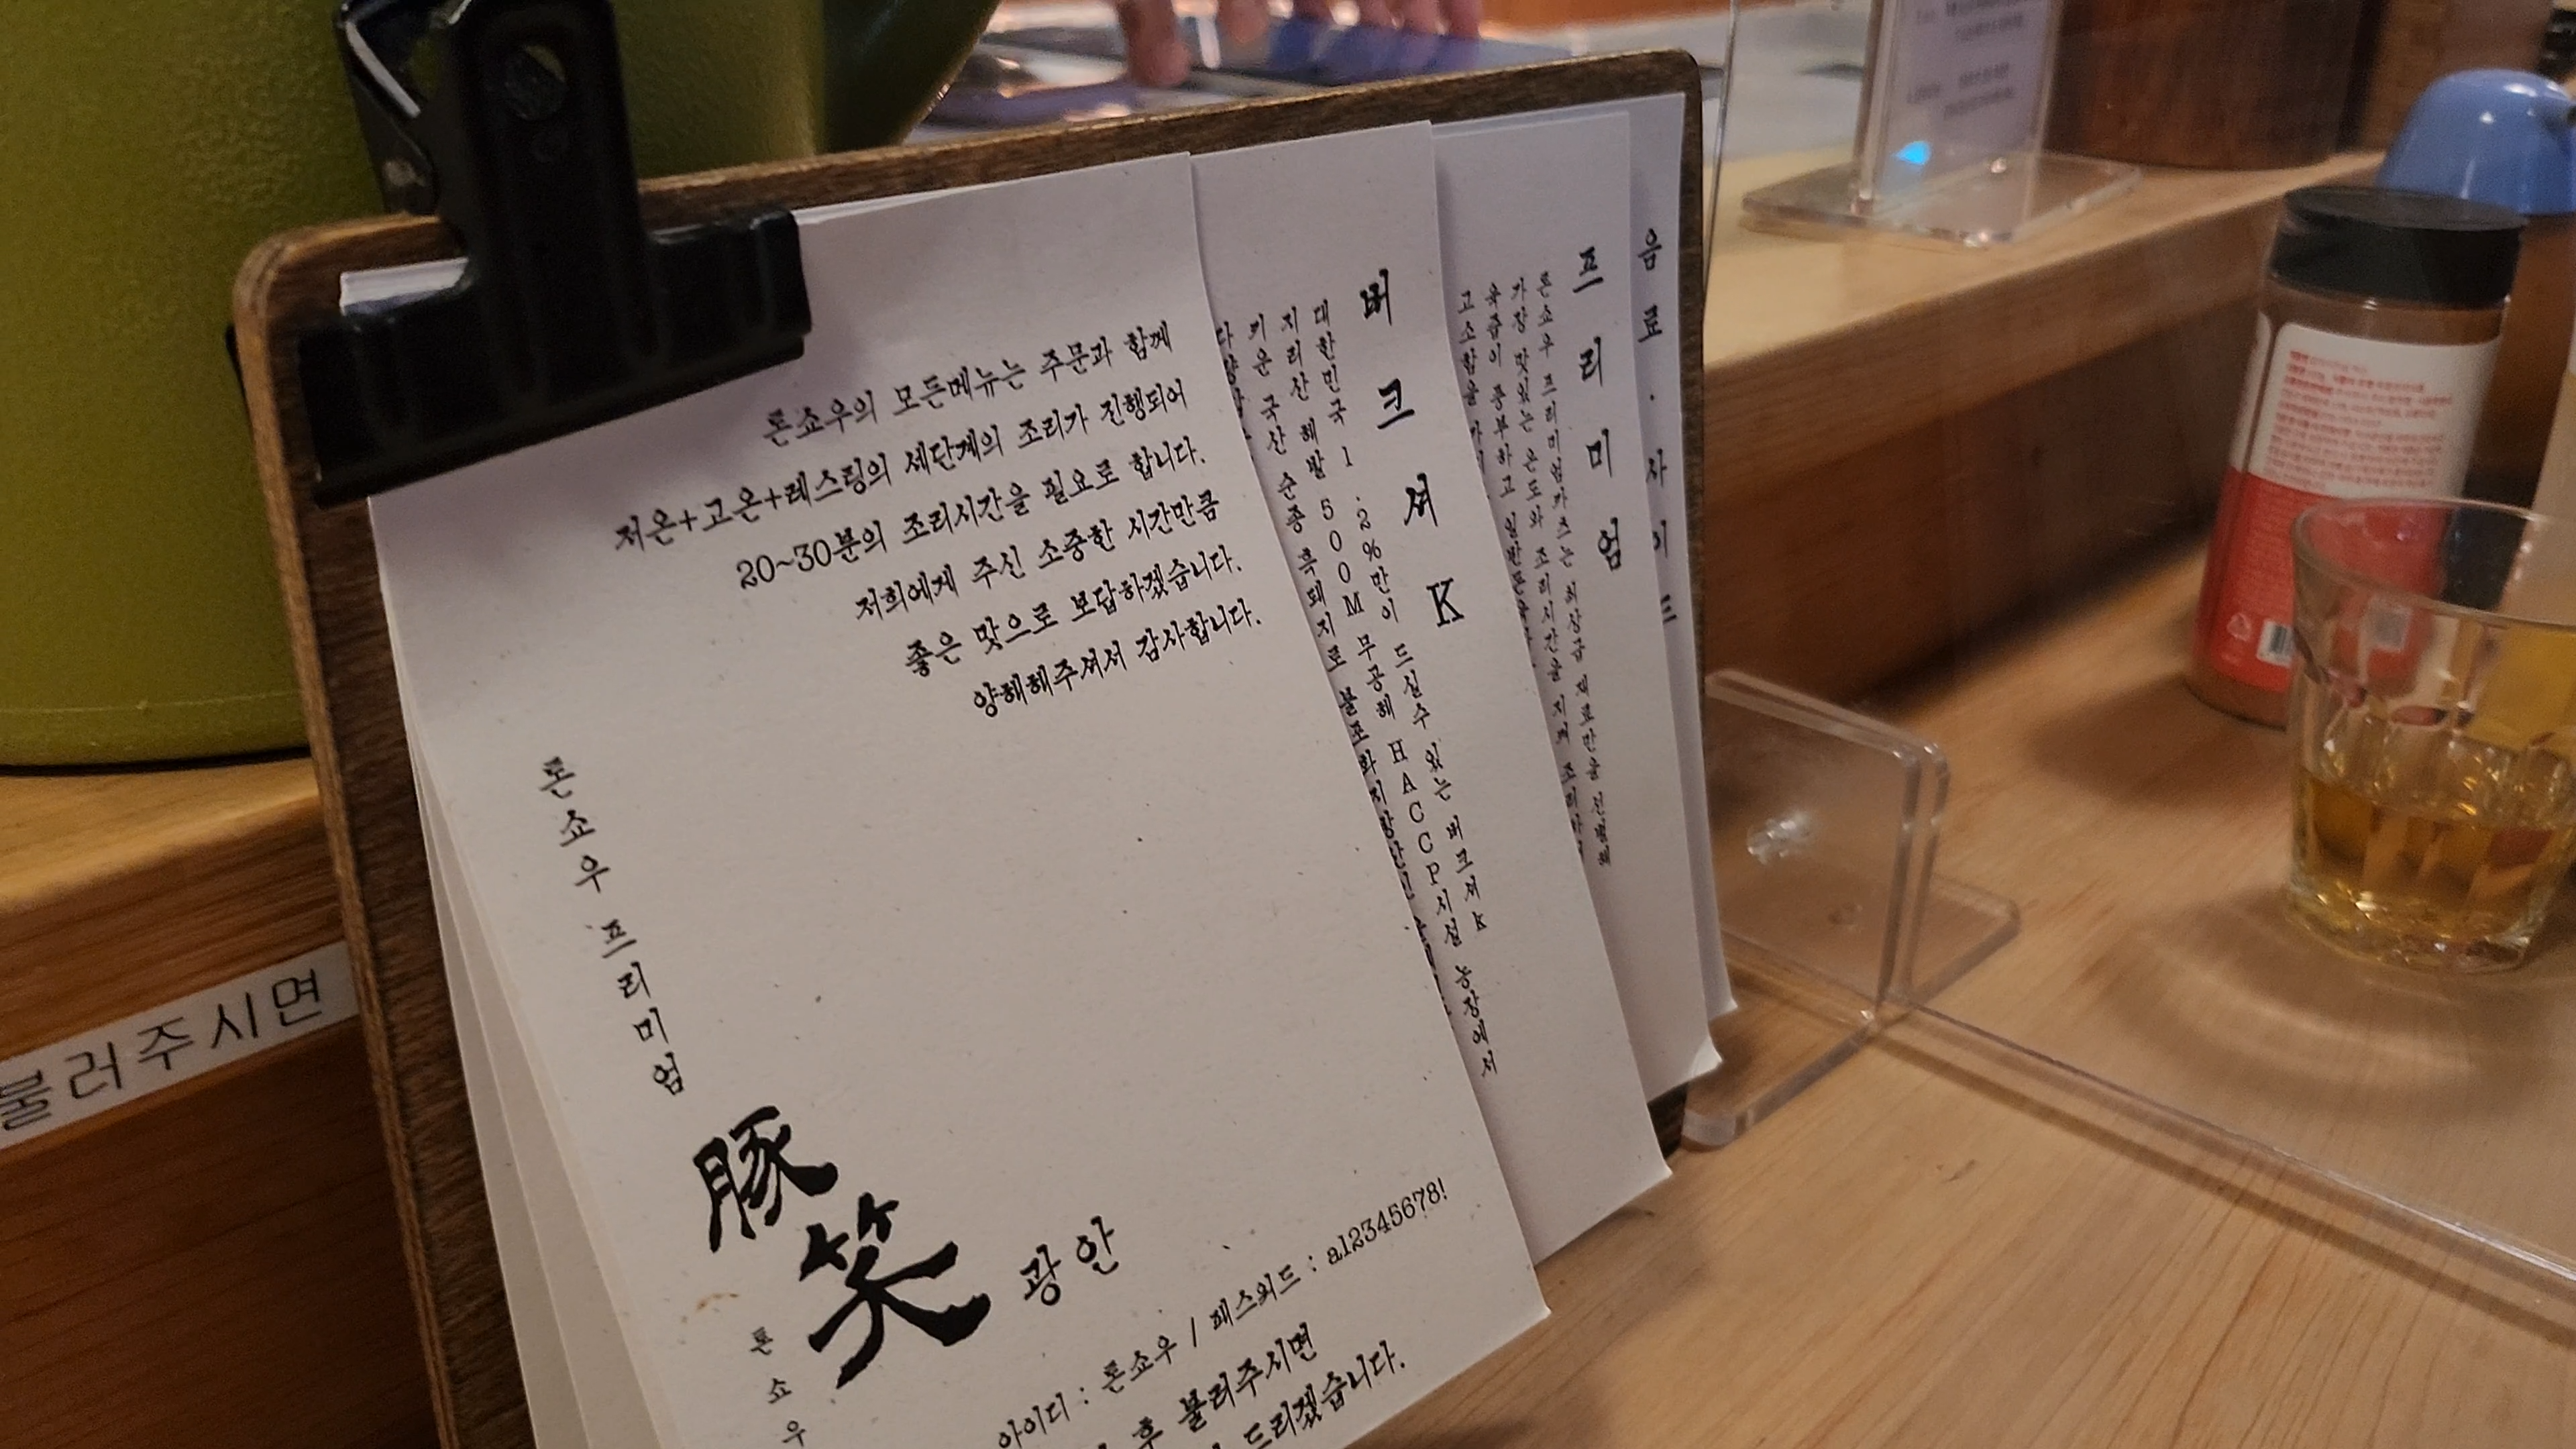 톤쇼우의 모든메뉴는 주문과 함께
저온+고온+레스팅의 세단계의 조리가 진행되어
20~30분의 조리시간을 필요로 합니다.
저희에게 주신 소중한 시간만큼
좋은 맛으로 보답하겠습니다.
양해해주셔서 감사합니다.
톤쇼우 프리미엄
豚笑
광안
톤쇼우
아이디 : 톤쇼우 / 패스워드 : a12345678!
후 불러주시면
드리겠습니다.
버크셔K
대한민국 1.2%만이 드실수 있는 버크셔k
지리산 해발 500M 무공해 HACCP시설 농장에서
키운 국산 순종 흑돼지로 불포화지방산인
프리미엄
톤쇼우 프리미엄카츠는 최상급 재료만을 선별해
가장 맛있는 온도와 조리시간을 지켜
육즙이 풍부하고
고소함을
음료·사이드
불러주시면